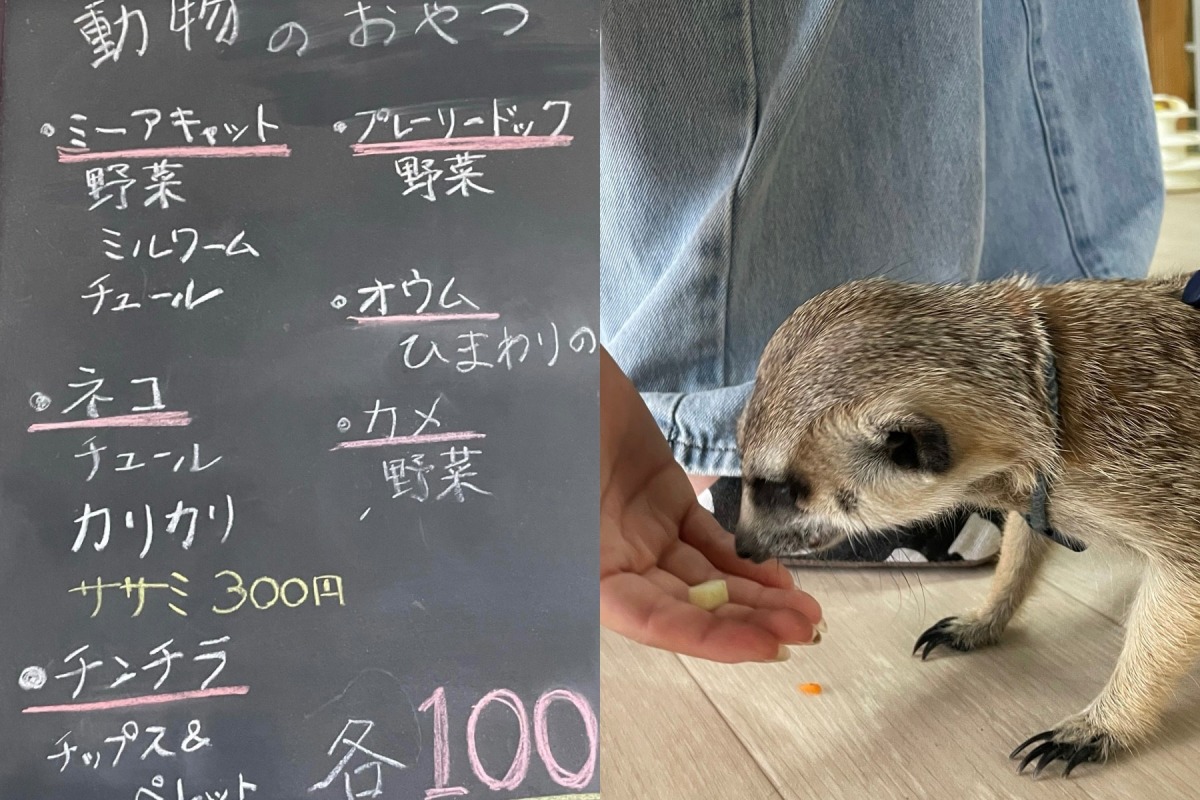 動物のおやつ
・ミーアキャット
野菜
ミルワーム
チュール
・ネコ
チュール
カリカリ
ササミ 300円
・チンチラ
チップス&
ペレット
・プレーリードック
野菜
・オウム
ひまわりの
・カメ
野菜
各100